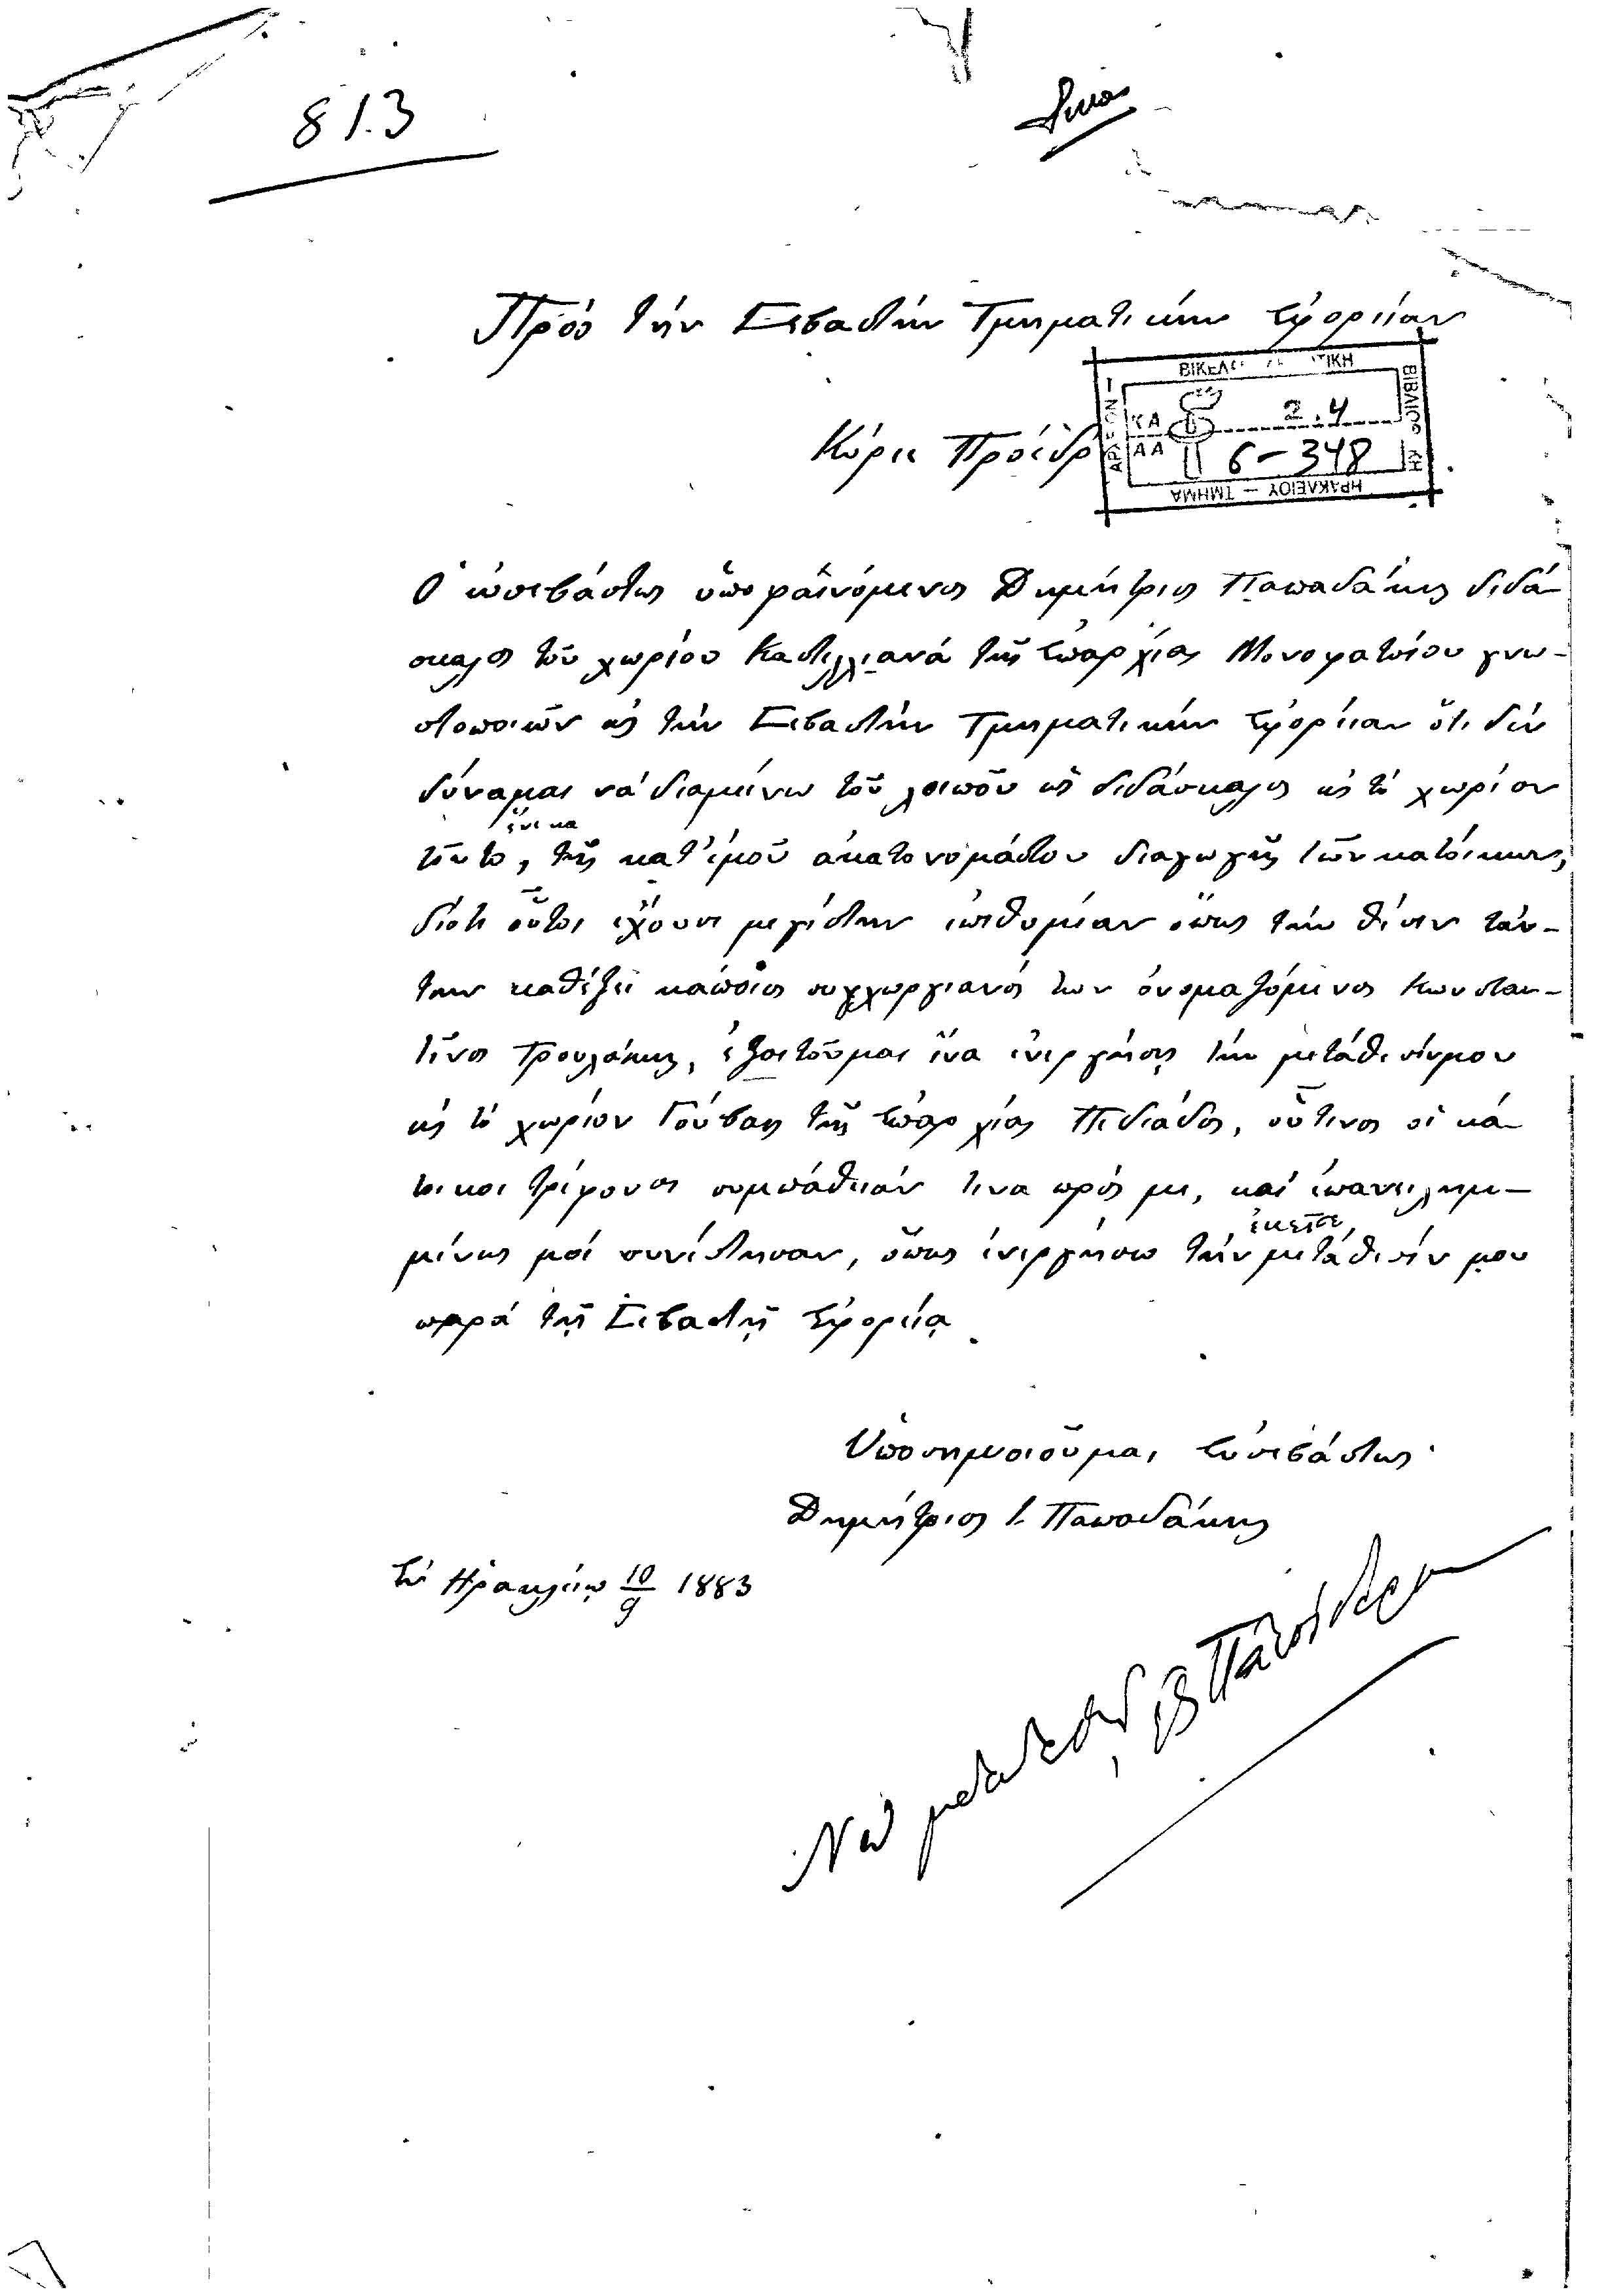 813
Πρός τήν Σεβαστήν Τμηματικήν Ἐφορείαν
ΒΙΚΕΛ
ΤΙΚΗ
ΚΑ 2.4
ΑΑ 6-348
ΗΡΑΚΛΕΙΟΥ — ΤΜΗΜΑ
Κύριε Πρόεδρ
Ὁ εὐσεβάστως ὑποφαινόμενος Δημήτριος Παπαδάκης διδά-
σκαλος τοῦ χωρίου Καστελλιανά τῆς ἐπαρχίας Μονοφατσίου γνω-
στοποιῶν εἰς τήν Σεβαστήν Τμηματικήν Ἐφορείαν ὅτι δέν
δύναμαι νά διαμείνω τοῦ λοιποῦ ὡς διδάσκαλος εἰς τό χωρίον
ἕνεκα
τοῦτο, τῆς κατ' ἐμοῦ ἀκατονομάστου διαγωγῆς τῶν κατοίκων,
διότι οὗτοι ἔχουσι μεγίστην ἐπιθυμίαν ὅπως τήν θέσιν ταύ-
την καθέξει κάποιος συγχωργιανός των ὀνομαζόμενος Κωνσταν-
τῖνος Τρουλάκης, ἐξαιτοῦμαι ἵνα ἐνεργήσῃς τήν μετάθεσίν μου
εἰς τό χωρίον Γούβαις τῆς ἐπαρχίας Πεδιάδος, οὗτινος οἱ κά-
τοικοι τρέφουσι συμπάθειάν τινα πρός με, καί ἐπανειλημ-
μένως μοί συνέστησαν, ὅπως ἐνεργήσω τήν μετάθεσίν μου
ἐκεῖσε,
παρά τῆς Σεβαστῆς Ἐφορείας
Ὑποσημειοῦμαι Εὐσεβάστως
Δημήτριος Ι. Παπαδάκης
Ἐν Ἡρακλείῳ 10/9 1883
Νά